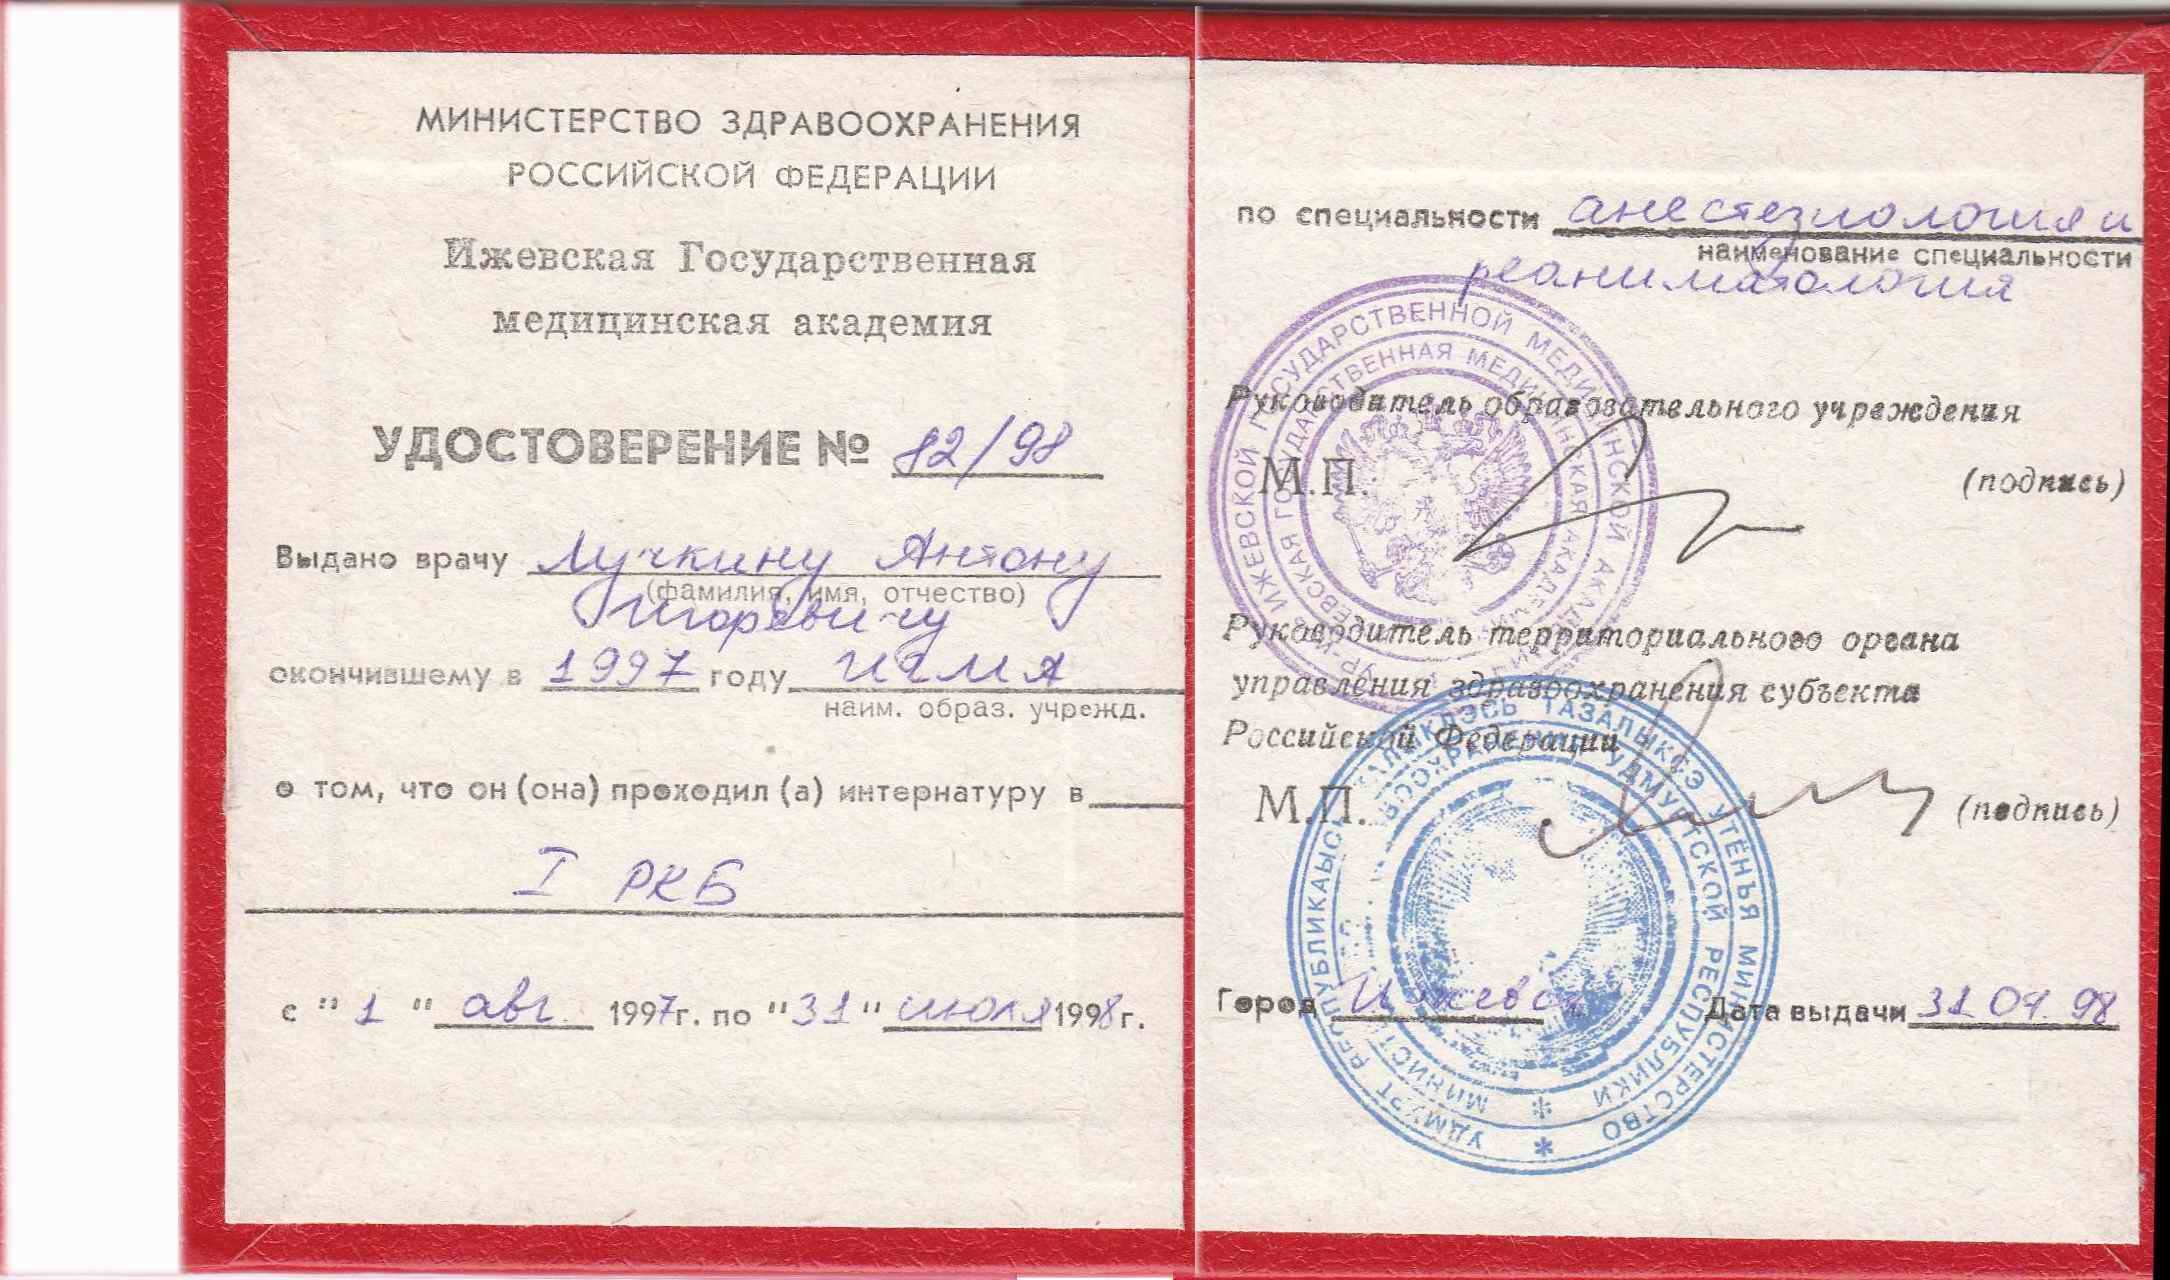 МИНИСТЕРСТВО ЗДРАВООХРАНЕНИЯ
РОССИЙСКОЙ ФЕДЕРАЦИИ
Ижевская Государственная
медицинская академия
УДОСТОВЕРЕНИЕ № 82/98
Выдано врачу Лучкину Антону
(фамилия, имя, отчество)
Игоревичу
окончившему в 1997 году ИГМА
наим. образ. учрежд.
о том, что он (она) проходил (а) интернатуру в
I РКБ
с "1" авг. 1997г. по "31" июля 1998г.
по специальности анестезиология и
наименование специальности
реаниматология
ИЖЕВСКОЙ ГОСУДАРСТВЕННОЙ МЕДИЦИНСКОЙ
ИЖЕВСКАЯ ГОСУДАРСТВЕННАЯ МЕДИЦИНСКАЯ АКАДЕМИЯ
Руководитель образовательного учреждения
М.П. (подпись)
Руководитель территориального органа
управления здравоохранения субъекта
Российской Федерации
М.П. (подпись)
УДМУРТ РЕСПУБЛИКАЫСЬ КАЛЫКЛЭСЬ ТАЗАЛЫКСЭ УТЕНЪЯ МИНИСТЕРСТВО
МИНИСТЕРСТВО ЗДРАВООХРАНЕНИЯ УДМУРТСКОЙ РЕСПУБЛИКИ
Город Ижевск Дата выдачи 31.07.98